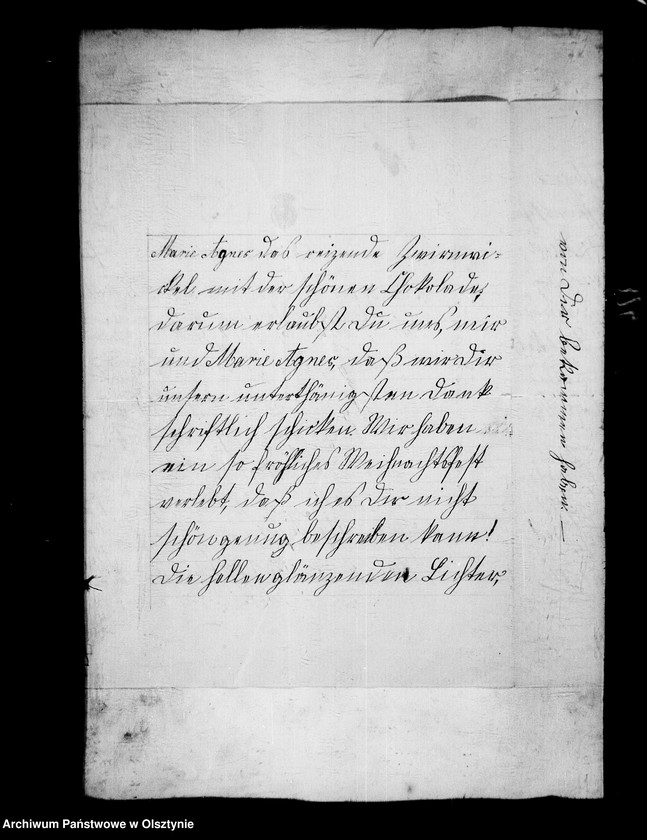 Marie Agnes das reizende Zwirnwi-
ckel mit der schönen Chokolade;
darum erlaubst Du uns, mir
und Marie Agnes, daß wir Dir
unsern unterthänigsten Dank
schriftlich schicken. Wir haben
ein so fröhliches Weihnachtsfest
verlebt, daß ich es Dir nicht
schön genug beschreiben kann!
Die hellen glänzenden Lichter,
von Dir bekommen haben. —
Archiwum Państwowe w Olsztynie